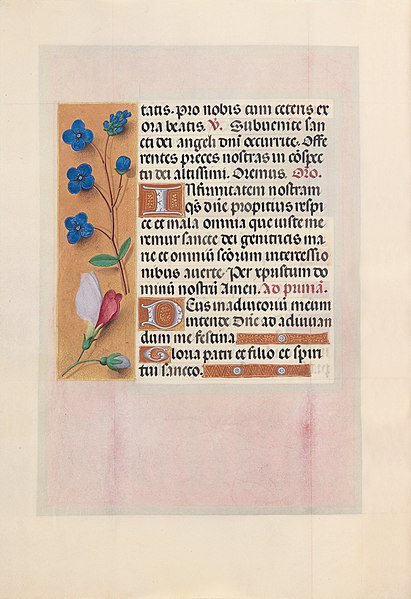 tatis. pro nobis cum ceteris ex
ora beatis. V. Subuenite san
cti dei angeli dñi occurrite. Offe
rentes preces nostras in cõspec
tu dei altissimi. Oremus. Oro.
Infirmitatem nostram
qs dñe propitius respi
ce et mala omnia que iuste me
remur sancte dei genitricis ma
rie et omniũ scõrum intercessio
nibus auerte. Per xpistum do
minũ nostrũ Amen. Ad primã.
Deus in adiutorium meum
intende Dñe ad adiuuan
dum me festina
Gloria patri et filio et spiri
tui sancto.